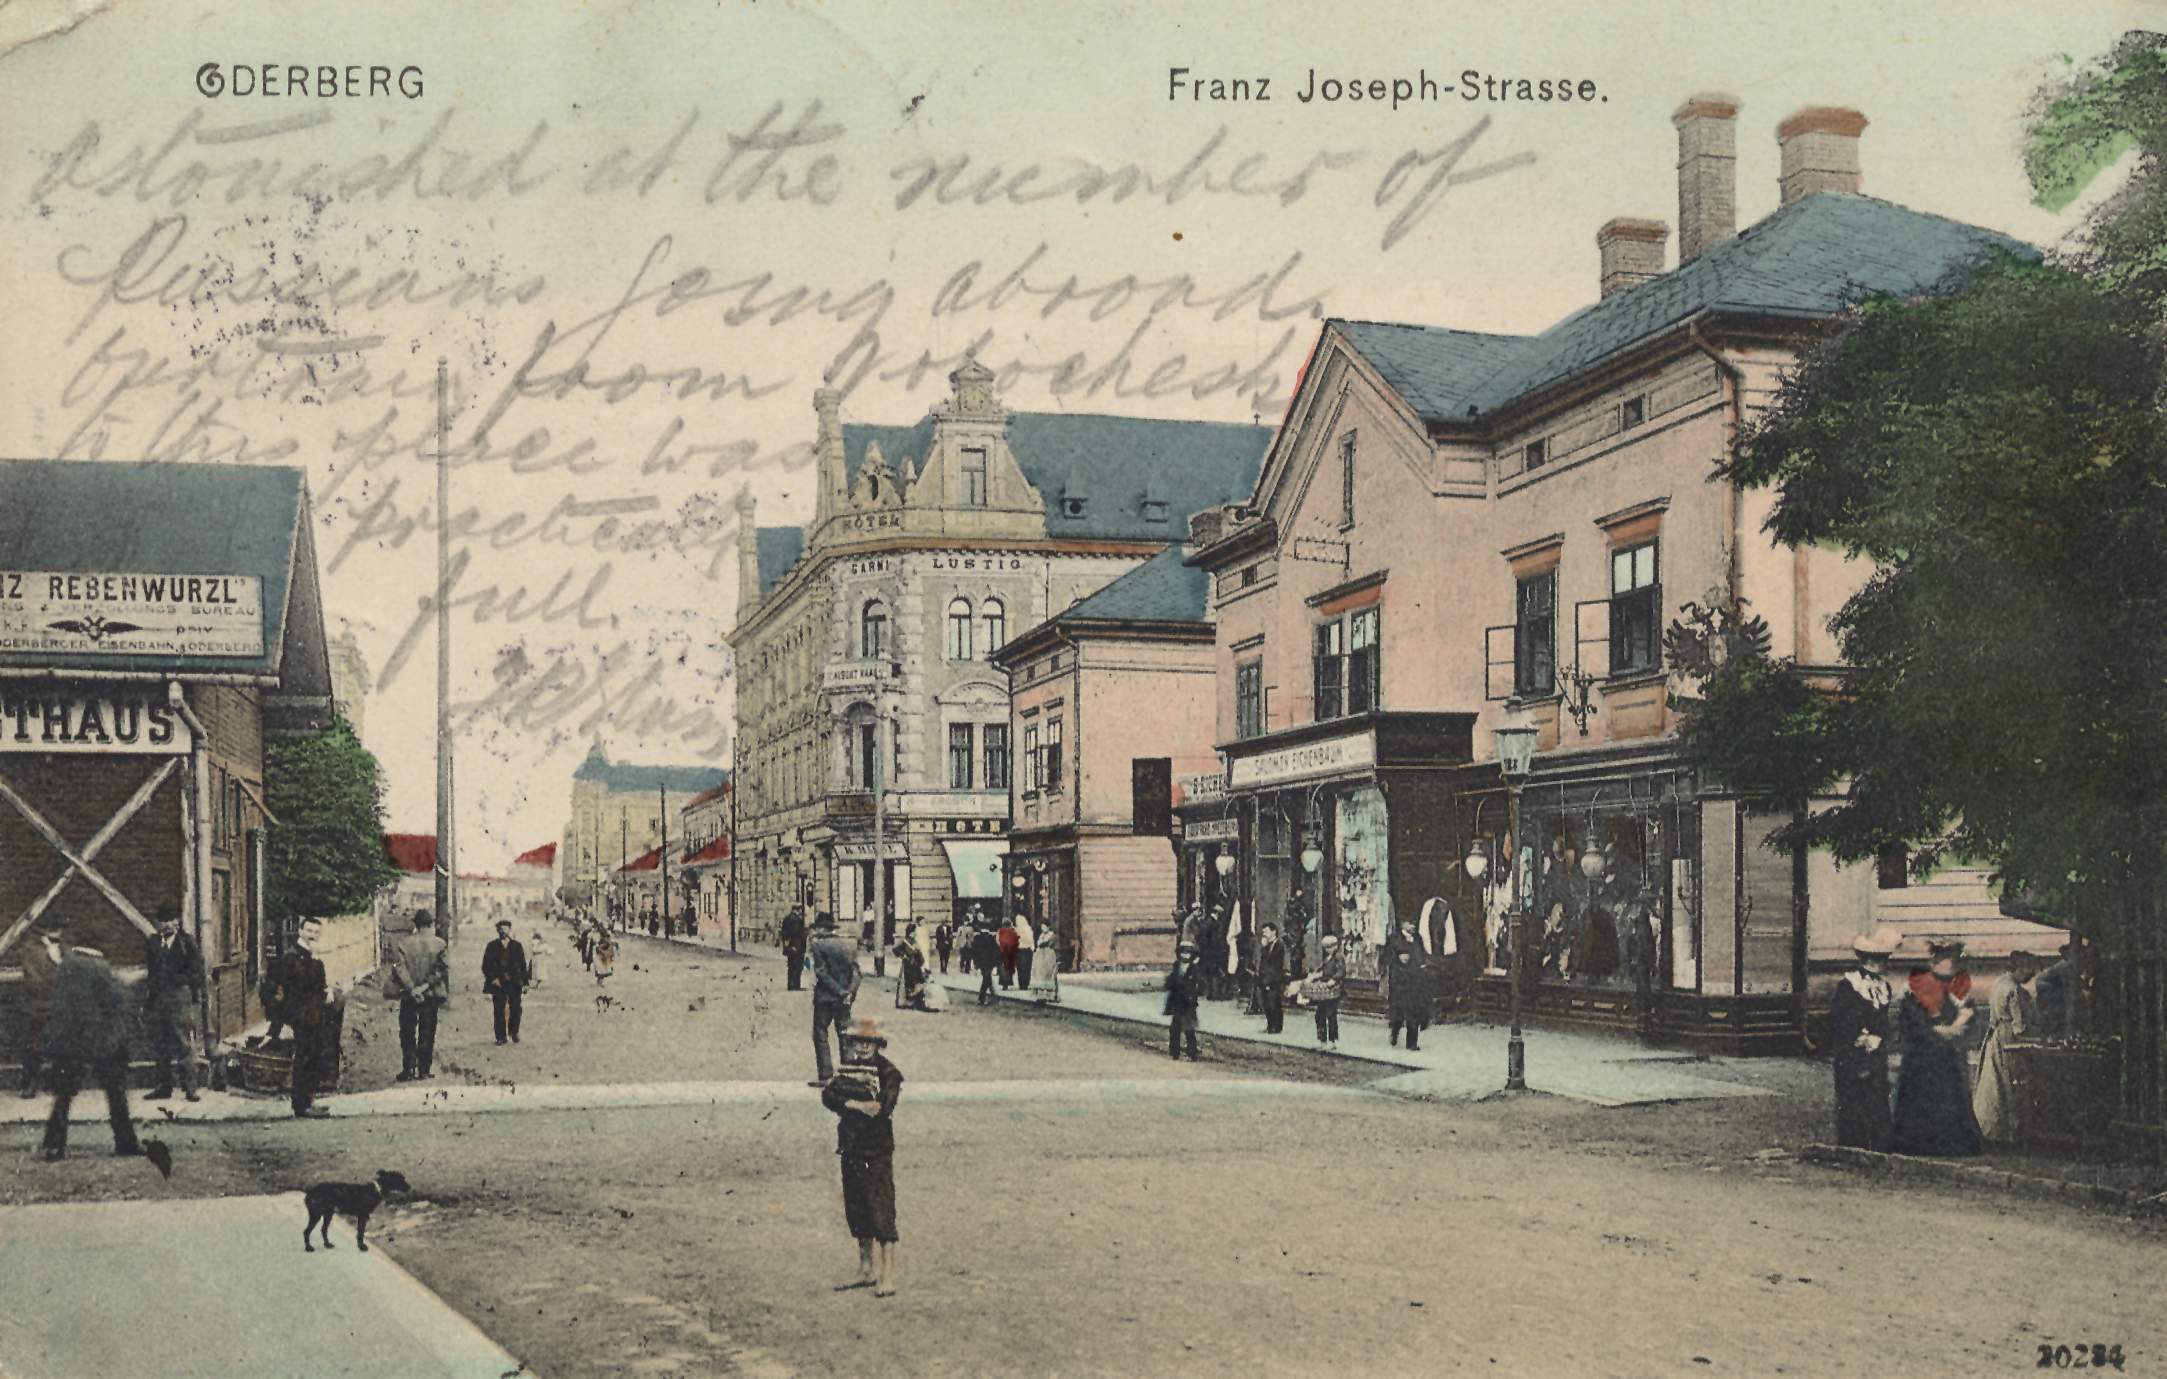 ODERBERG
Franz Joseph-Strasse.
astonished at the number of
Russians going abroad.
our train from
to this place was
practically
full.
HOTEL
GARNI LUSTIG
NZ REBENWURZL
& VERZOLLUNGS BUREAU
K.K. PRIV
ODERBERGER EISENBAHN, ODERBERG
STHAUS
ALBERT HAAS
SALOMON EICHENBAUM
S. EICHE
HOTE
20284